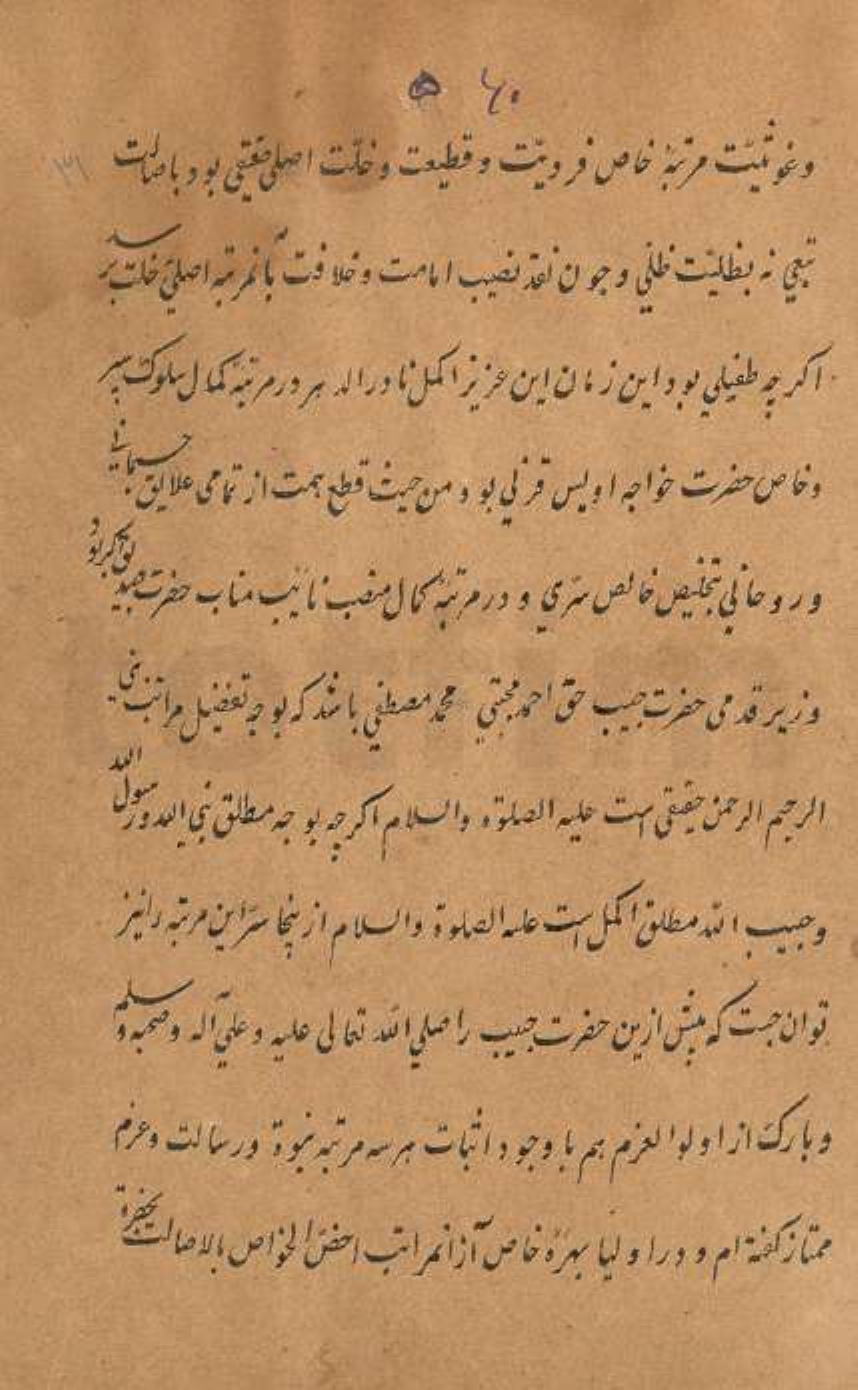 ۶۰
۳۱
وغوثیّت مرتبهٔ خاص فردیّت و قطبیت و خلّت اصلی حقیقی بود باصالت
تبعی نه بظلیّت ظلّی و چون نقد نصیب امامت و خلافت بآنمرتبه اصلیّ خلّت برسد
اکرچه طفیلی بود این زمان این عزیز اکمل نادرالدهر در مرتبهٔ کمال سلوک
وخاص حضرت خواجه اویس قرنی بود من حیث قطع همت از تمامی علایق جسمانی
و روحانی بتخلیص خالص سرّی و در مرتبهٔ کمال منصب نائب مناب حضرت بود
وزیر قدمی حضرت حبیب حق احمد مجتبی محمد مصطفی باشد که بوجه تفضیل مراتب نبی
الرحیم الرحمن حقیقی است علیه الصلوة والسلام اکرچه بوجه مطلق نبی الله ورسول الله
وحبیب الله مطلق اکمل است علیه الصلوة والسلام ازینجا سرّ این مرتبه را نیز
توان جست که پیش ازین حضرت حبیب را صلی الله تعالی علیه و علی آله وصحبه وسلم
و بارک از اولوالعزم هم با وجود اثبات هر سه مرتبه نبوة ورسالت وعزم
ممتاز کفته ام و در اولیا بهرهٔ خاص آز انمراتب اخصّ الخواص بالاصالت بحضرة